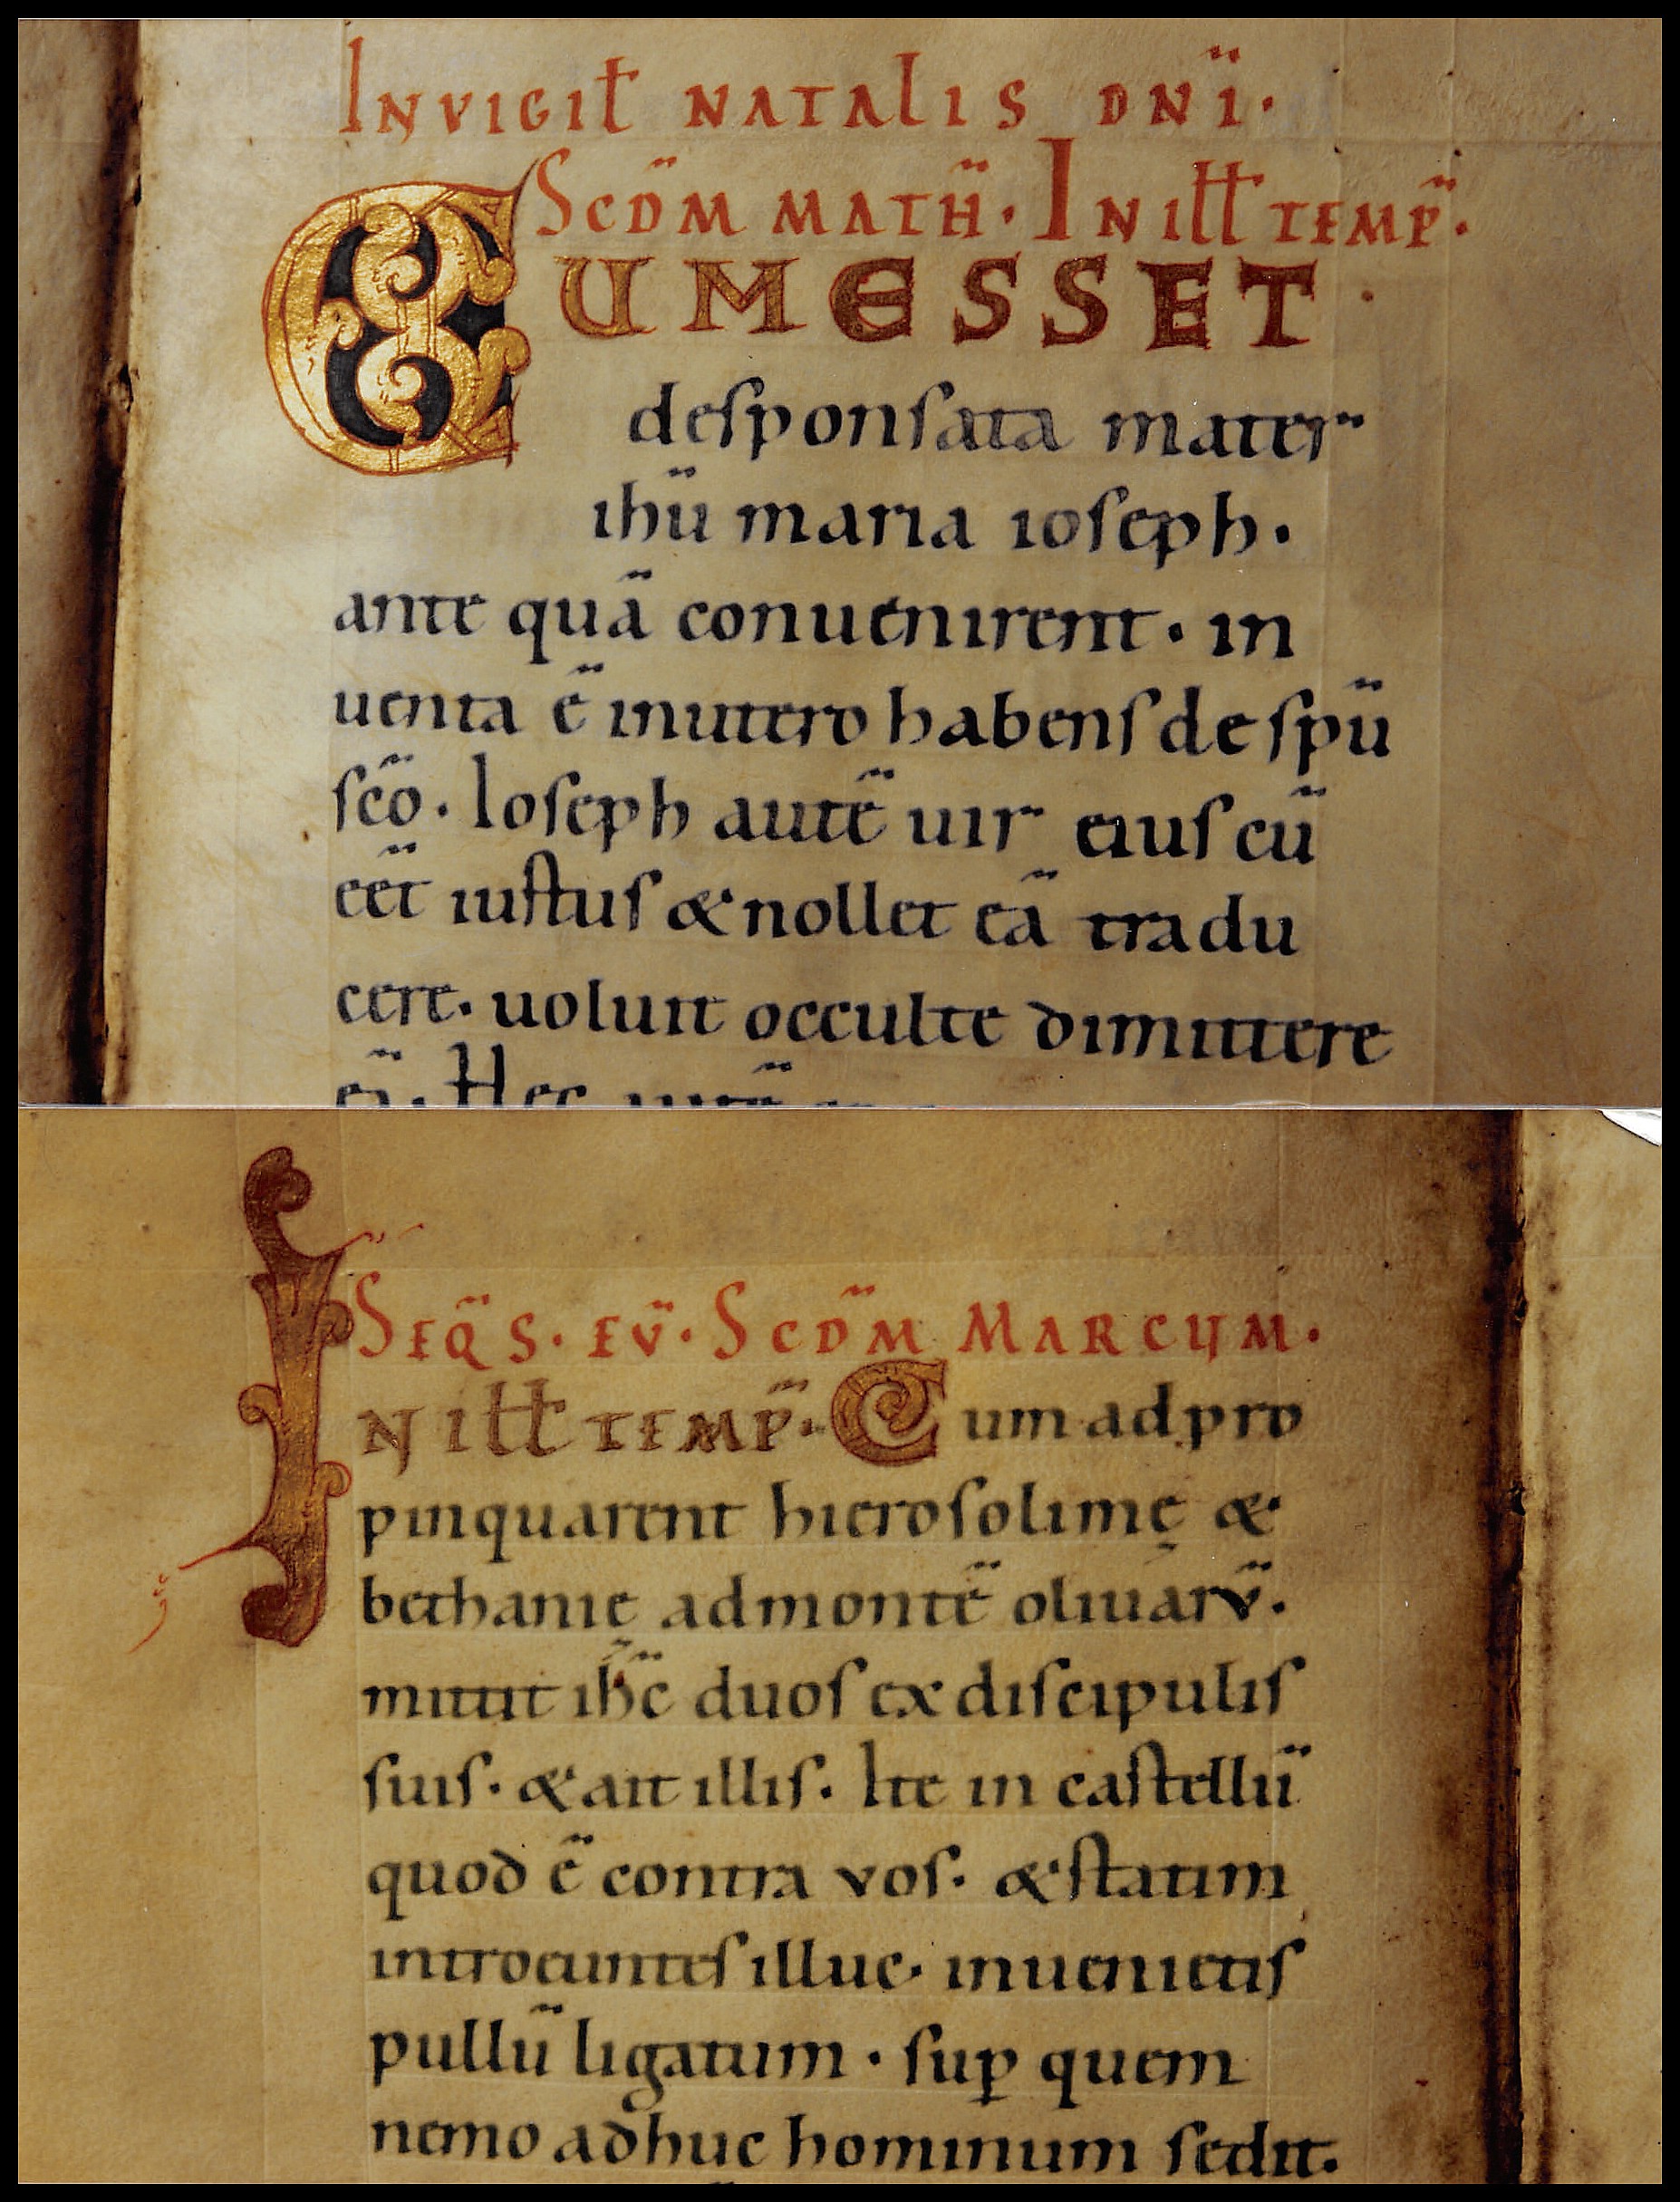 INVIGIŁ NATALIS DNĪ.
SCD̄M MATH̄. IN ILŁ TEMP̄.
CUM ESSET
desponsata mater
ihū maria ioseph.
ante quā conuenirent. in
uenta ē inutero habens de spū
scō. Ioseph autē uir eius cū
eēt iustus & nollet eā tradu
cere. uoluit occulte dimittere
SEQ̄S. EV̄. SCD̄M MARCUM.
IN ILŁ TEMP̄. Cum adpro
pinquarent hierosolimę &
bethanię admontē oliuarū.
mittit ih̄c duos ex discipulis
suis. & ait illis. Ite in castellū
quod ē contra vos. & statim
introeuntes illuc. inuenietis
pullū ligatum. sup̄ quem
nemo adhuc hominum sedit.